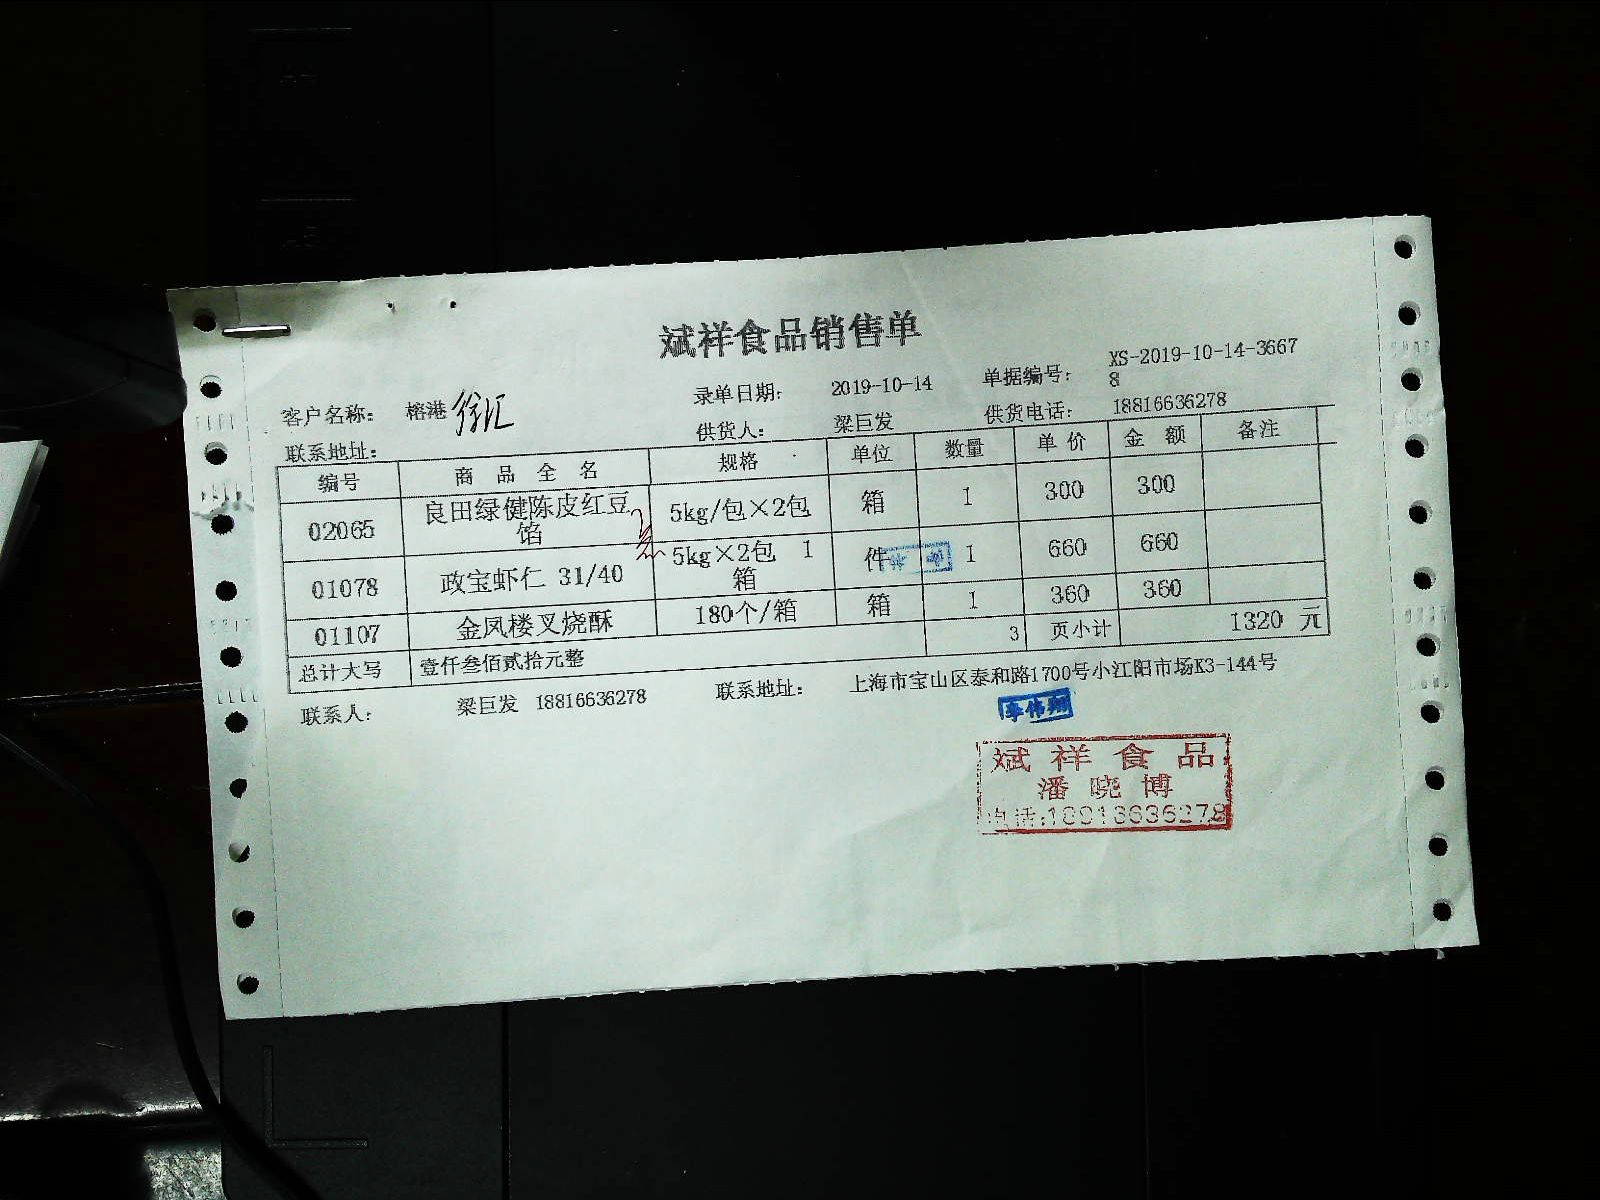 斌祥食品销售单
客户名称： 榕港 徐汇 录单日期： 2019-10-14 单据编号： XS-2019-10-14-3667
8
联系地址： 供货人： 梁巨发 供货电话： 18816636278
编号 商品全名 规格 单位 数量 单价 金额 备注
02065 良田绿健陈皮红豆 5kg/包×2包 箱 1 300 300
馅
01078 政宝虾仁 31/40 5kg×2包 1 件 1 660 660
箱
01107 金凤楼叉烧酥 180个/箱 箱 1 360 360
总计大写 壹仟叁佰贰拾元整 3 页小计 1320 元
联系人： 梁巨发 18816636278 联系地址： 上海市宝山区泰和路1700号小江阳市场K3-144号
李伟翔
斌祥食品
潘晓博
电话:18816636278